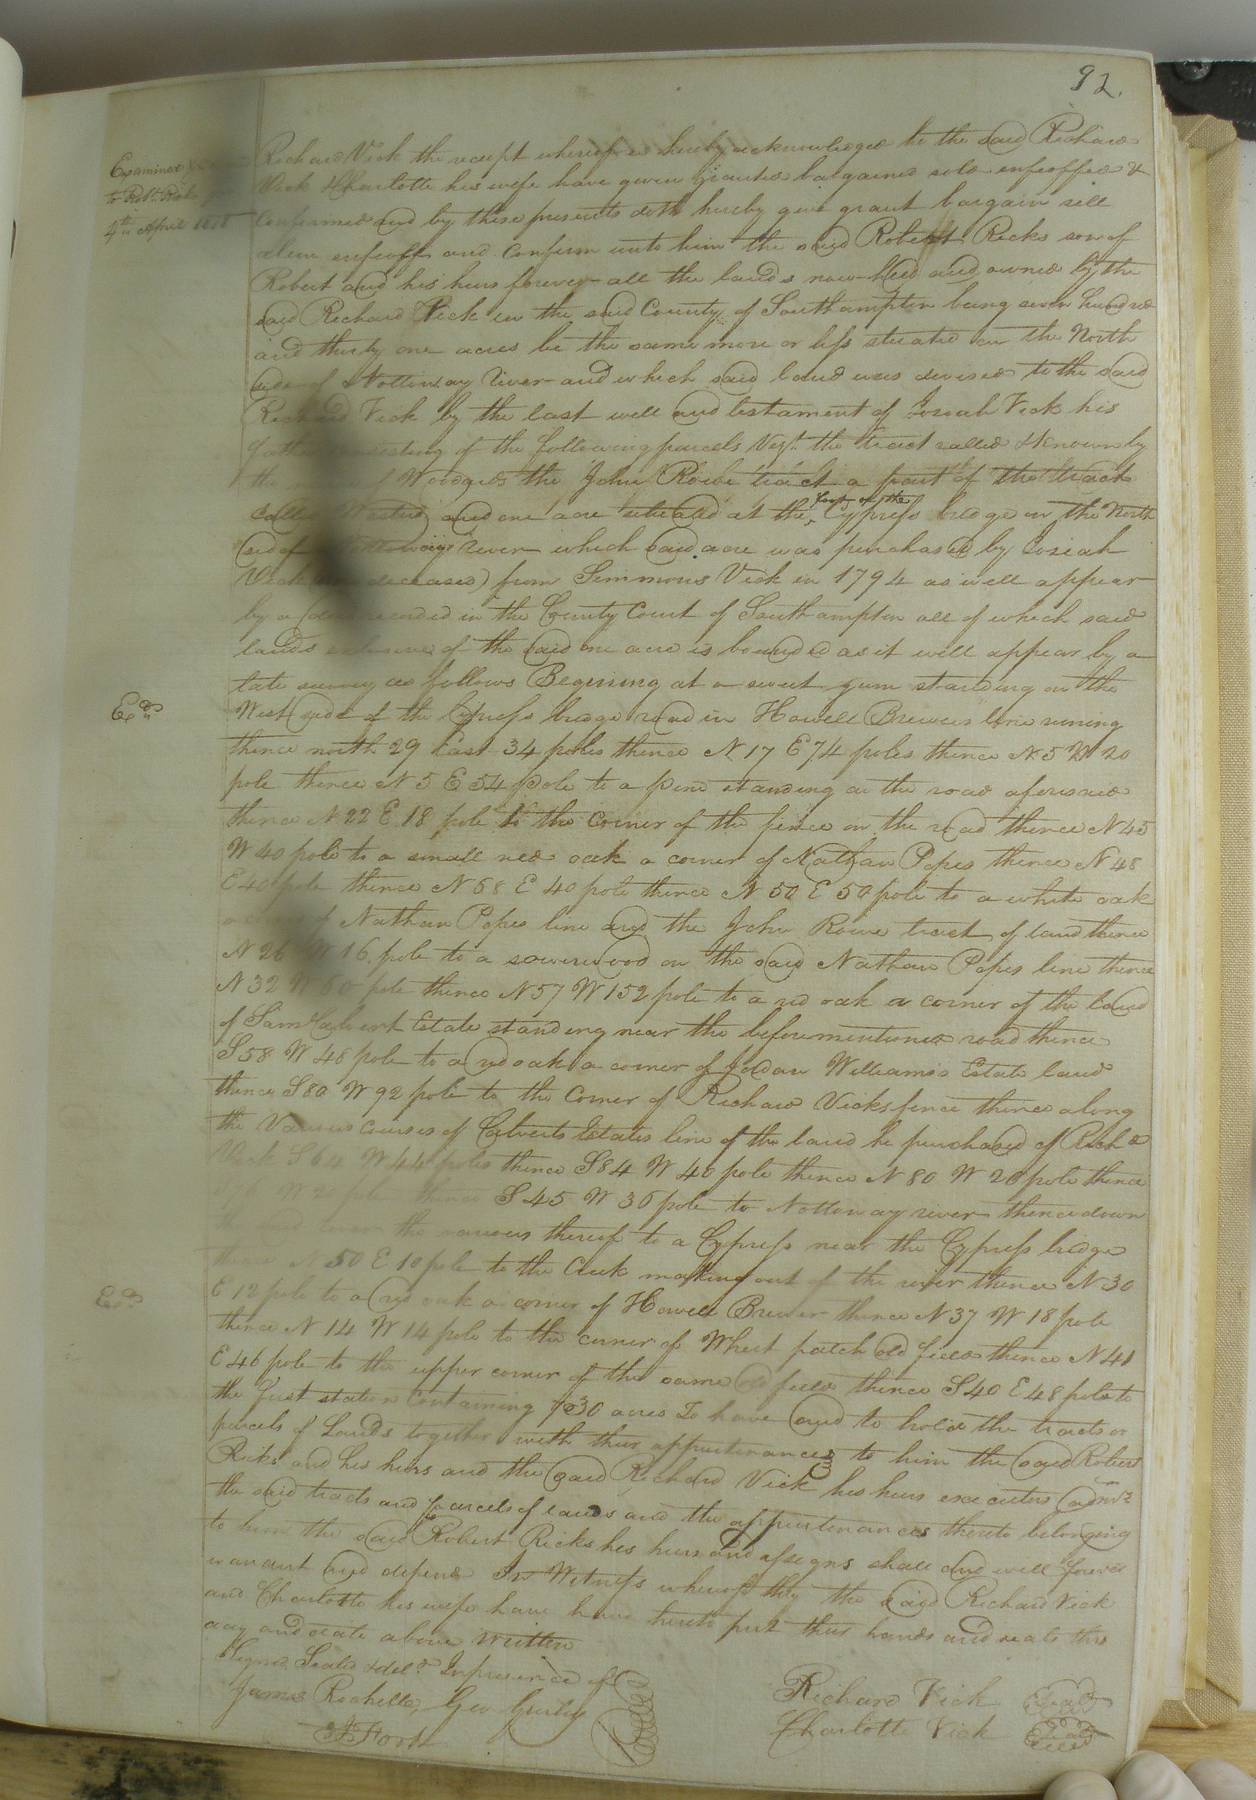 92.
Examined &
to Robt. Ricks
4th April 1818
Richard Vick the receipt whereof is hereby acknowledged he the said Richard
Vick & Charlotte his wife have given granted bargained sold enfeoffed &
Confirmed and by these presents doth hereby give grant bargain sell
alien enfeoff and Confirm unto him the said Robert Ricks son of
Robert and his heirs forever all the lands now held and owned by the
said Richard Vick in the said County of Southampton being seven hundred
and thirty one acres be the same more or less situated on the North
side of Nottoway River and which said land was devised to the said
Richard Vick by the last will and testament of Josiah Vick his
father consisting of the following parcels Vizt. the tract called & known by
the the John Rowe tract a part of the tract
called and one acre situated at the foot of the Cypress bridge on the North
side of Nottoway River which said acre was purchased by Josiah
Vick deceased) from Simmons Vick in 1794 as will appear
by a deed recorded in the County Court of Southampton all of which said
lands exclusive of the said one acre is bounded as it will appear by a
late survey as follows Begining at a sweet gum standing on the
Exd.
West side of the Cypress bridge road in Howell Brewers line runing
thence north 29 East 34 poles thence N 17 E 74 poles thence N 5 W 20
pole thence N 5 E 54 pole to a pine standing on the road aforesaid
thence N 22 E 18 pole to the Corner of the fence on the road thence N 45
W 40 pole to a small red oak a corner of Nathan Popes thence N 48
E 40 pole thence N 68 E 40 pole thence N 50 E 50 pole to a white oak
a corner of Nathan Popes line and the John Rowe tract of land thence
N 26 W 16 pole to a sowerwood on the said Nathan Popes line thence
N 32 W 60 pole thence N 57 W 152 pole to a red oak a corner of the land
of Saml Calvert Estate standing near the beforementioned road thence
S 58 W 48 pole to a red oak a corner of Jordan Williams's Estate land
thence S 80 W 92 pole to the Corner of Richard Vicks fence thence along
the Various courses of Calverts Estates line of the land he purchased of Richd
Vick S 64 W 44 poles thence S 84 W 40 pole thence N 80 W 20 pole thence
W thence S 45 W 36 pole to Nottoway river thence down
the various thereof to a Cypress near the Cypress bridge
thence N 50 E 10 pole to the Creek making out of the river thence N 30
Exd.
E 12 pole to a red oak a corner of Howell Brewer thence N 37 W 18 pole
thence N 14 W 14 pole to the corner of Wheat patch old field thence N 41
E 46 pole to the upper corner of the same old field thence S 40 E 48 pole to
the first station Containing 730 acres To have and to hold the tracts or
parcels of Lands together with their appurtenances to him the said Robert
Ricks and his heirs and the said Richard Vick his heirs executors admrs
the said tracts and parcels of lands and the appurtenances thereto belonging
to him the said Robert Ricks his heirs and assigns shall and will forever
warrant and defend In Witness whereof they the said Richard Vick
and Charlotte his wife have hereunto put their hands and seals this
day and date above written
Signed Sealed & deld. In presence of
James Rochelle, Geo Gurley
Richard Vick Seal
Charlotte Vick Seal